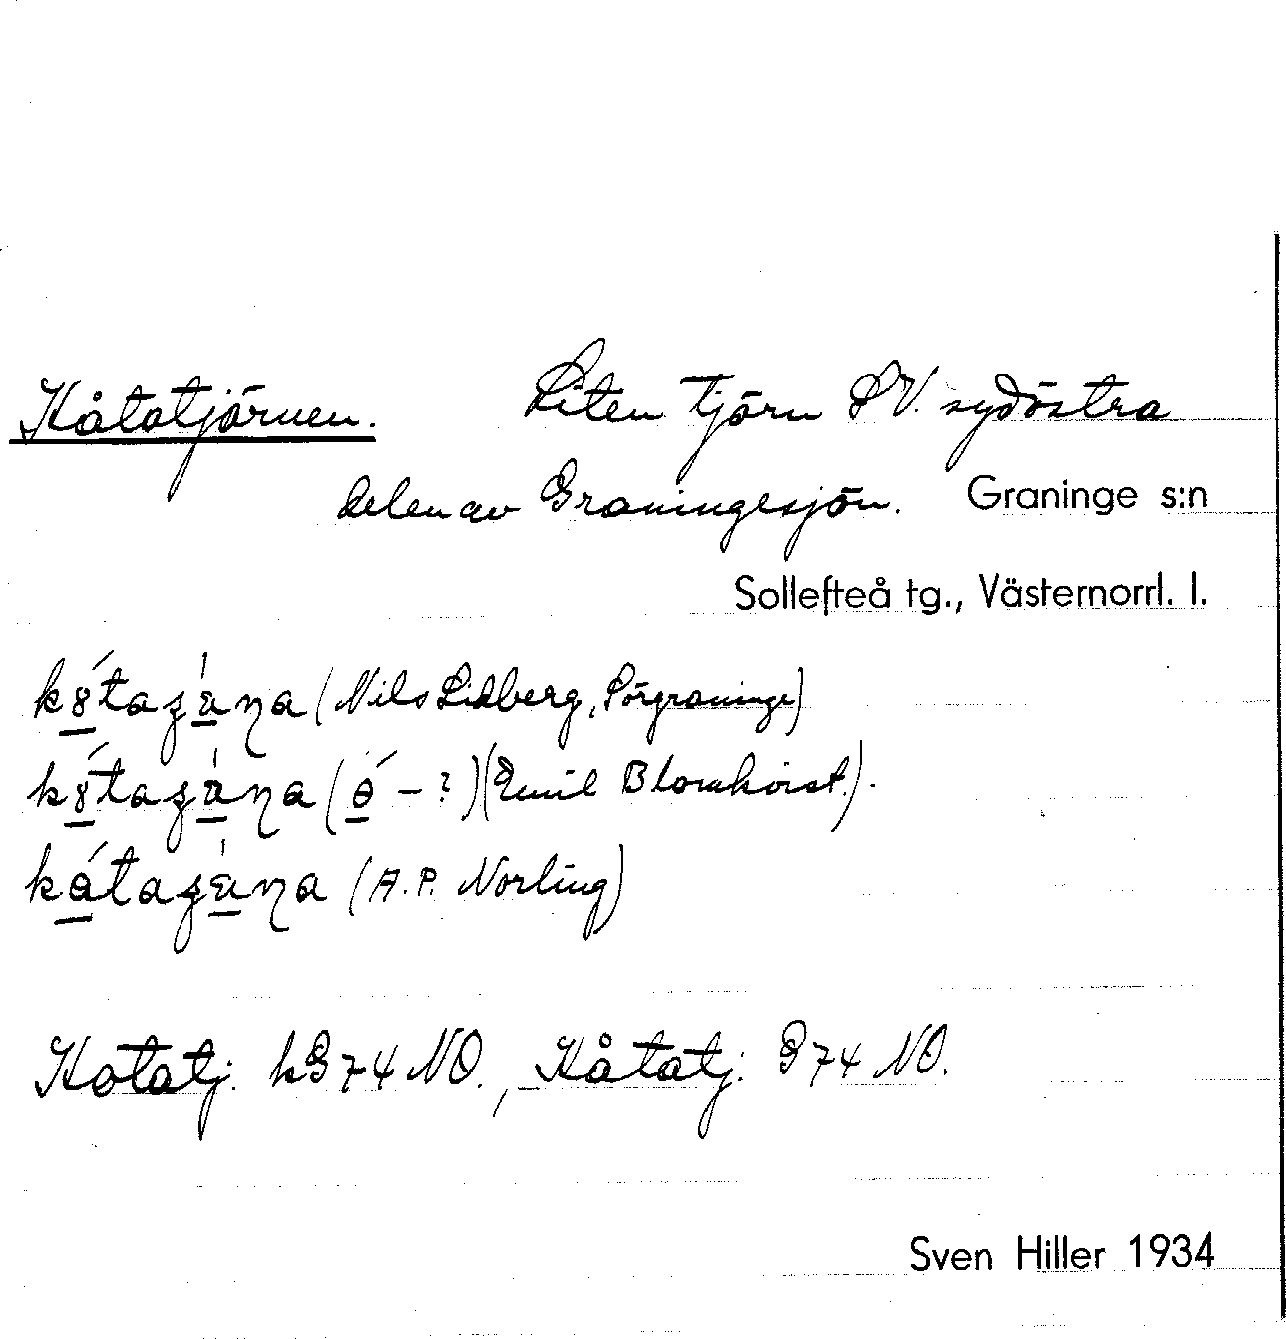 Kåtatjärnen. Liten tjärn SV. sydöstra
delen av Graningesjön. Graninge s:n
Sollefteå tg., Västernorrl. l.
(Nils Lidberg, Sörgraninge)
(Emil Blomkvist).
(A.P. Norling)
Kotatj. kG74 NO., Kåtatj: G74 NO.
Sven Hiller 1934